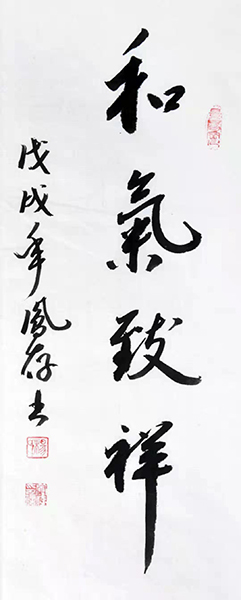 和氣致祥
戊戌年鳳存书